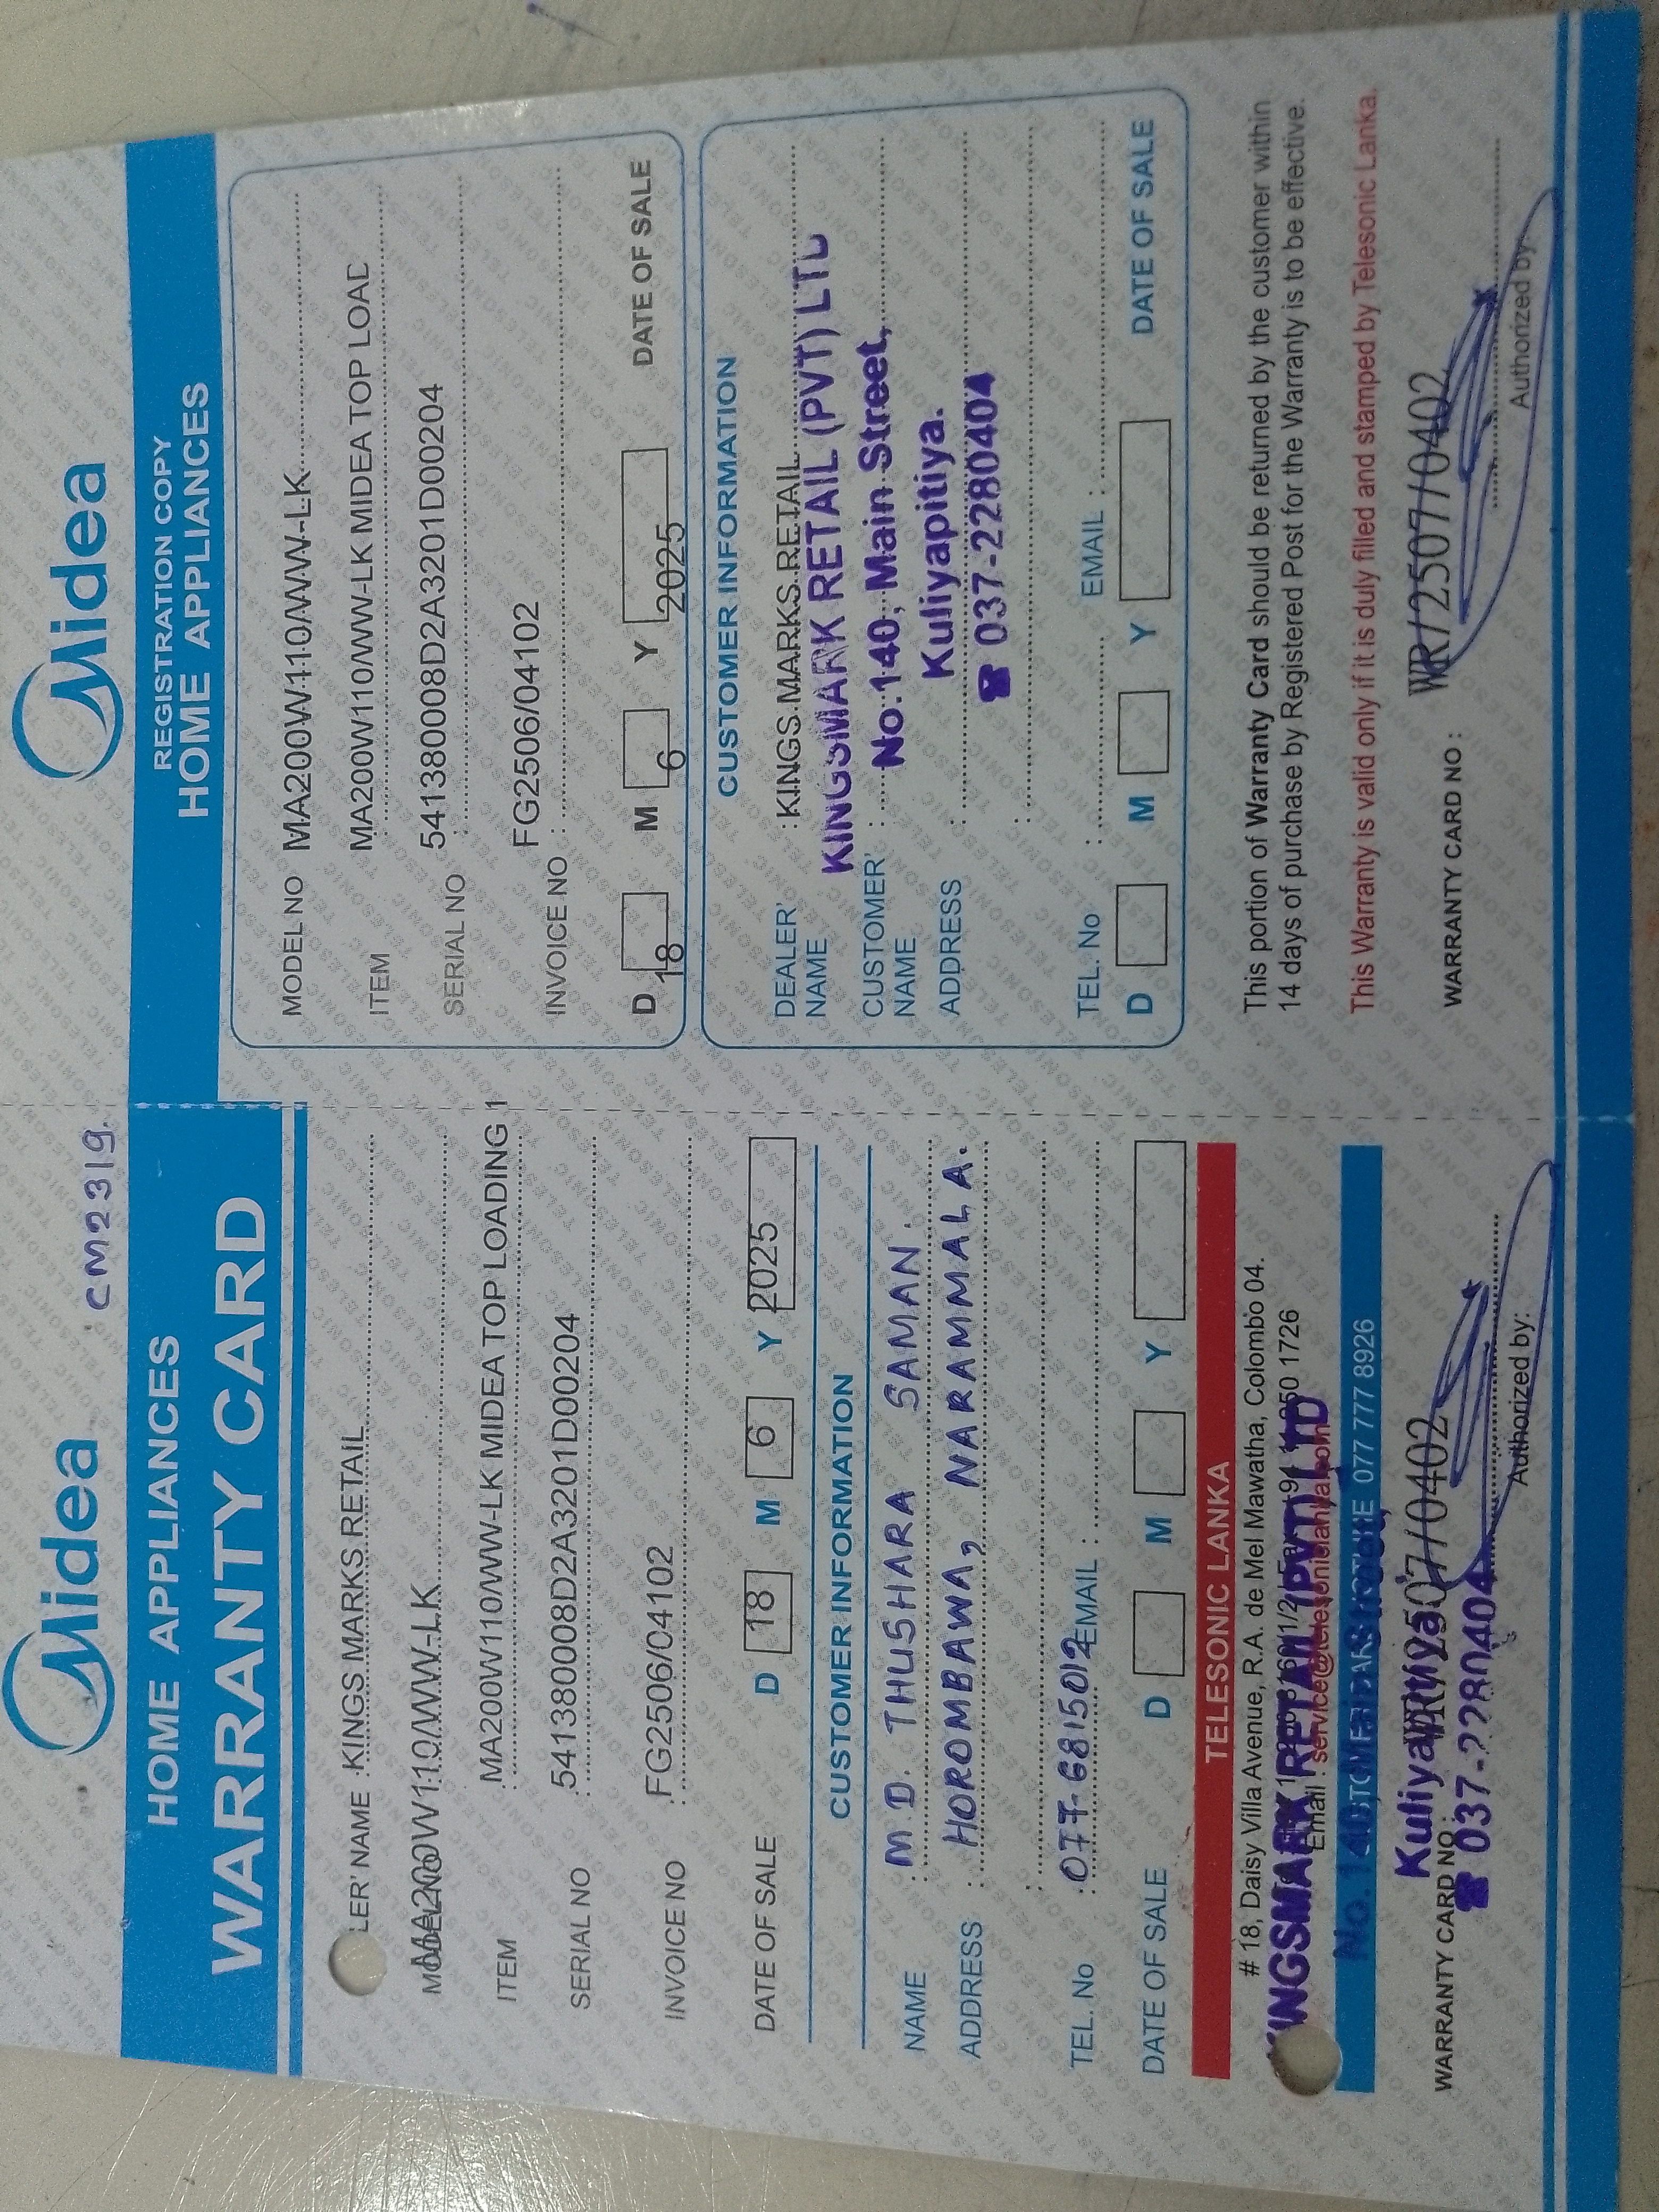 CM2319.
Midea
HOME APPLIANCES
WARRANTY CARD
LER' NAME : KINGS MARKS RETAIL
MA200W110/WW-LK
ITEM : MA200W110/WW-LK MIDEA TOP LOADING 1
SERIAL NO : 541380008D2A3201D00204
INVOICE NO : FG2506/04102
DATE OF SALE D 18 M 6 Y 2025
CUSTOMER INFORMATION
NAME : M D. THUSHARA SAMAN.
ADDRESS : HOROMBAWA, NARAMMALA.
TEL. No : 077-6815012 EMAIL :
DATE OF SALE D M Y
TELESONIC LANKA
# 18, Daisy Villa Avenue, R.A. de Mel Mawatha, Colombo 04.
KINGSMARK RETAIL (PVT) LTD
No. 140, Main Street,
077 777 8926
Kuliyapitiya.
☎ 037-2280404
WARRANTY CARD NO : WR/2507/0402
Authorized by:
Midea
REGISTRATION COPY
HOME APPLIANCES
MODEL NO MA200W110/WW-LK
ITEM MA200W110/WW-LK MIDEA TOP LOAD
SERIAL NO : 541380008D2A3201D00204
INVOICE NO : FG2506/04102
D 18 M 6 Y 2025 DATE OF SALE
CUSTOMER INFORMATION
DEALER' NAME : KINGS MARKS RETAIL
KINGSMARK RETAIL (PVT) LTD
CUSTOMER' NAME : No. 140, Main Street,
Kuliyapitiya.
ADDRESS :
☎ 037-2280404
TEL. No : EMAIL :
D M Y DATE OF SALE
This portion of Warranty Card should be returned by the customer within
14 days of purchase by Registered Post for the Warranty is to be effective.
This Warranty is valid only if it is duly filled and stamped by Telesonic Lanka.
WARRANTY CARD NO : WR/2507/0402
Authorized by: